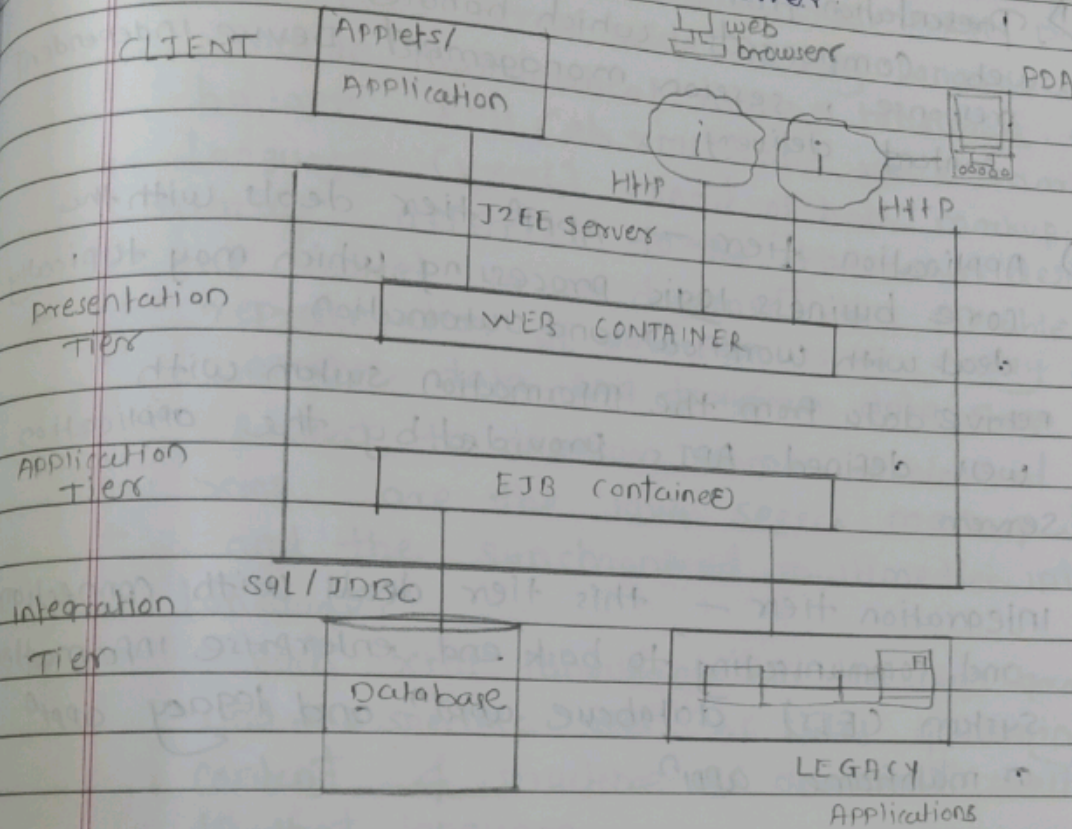 CLIENT
Applets/
Application
web
browser
PDA
i
i
HTTP
HTTP
J2EE server
presentation
Tier
WEB CONTAINER
Application
Tier
EJB Container
SQL / JDBC
integration
Tier
Database
LEGACY
Applications